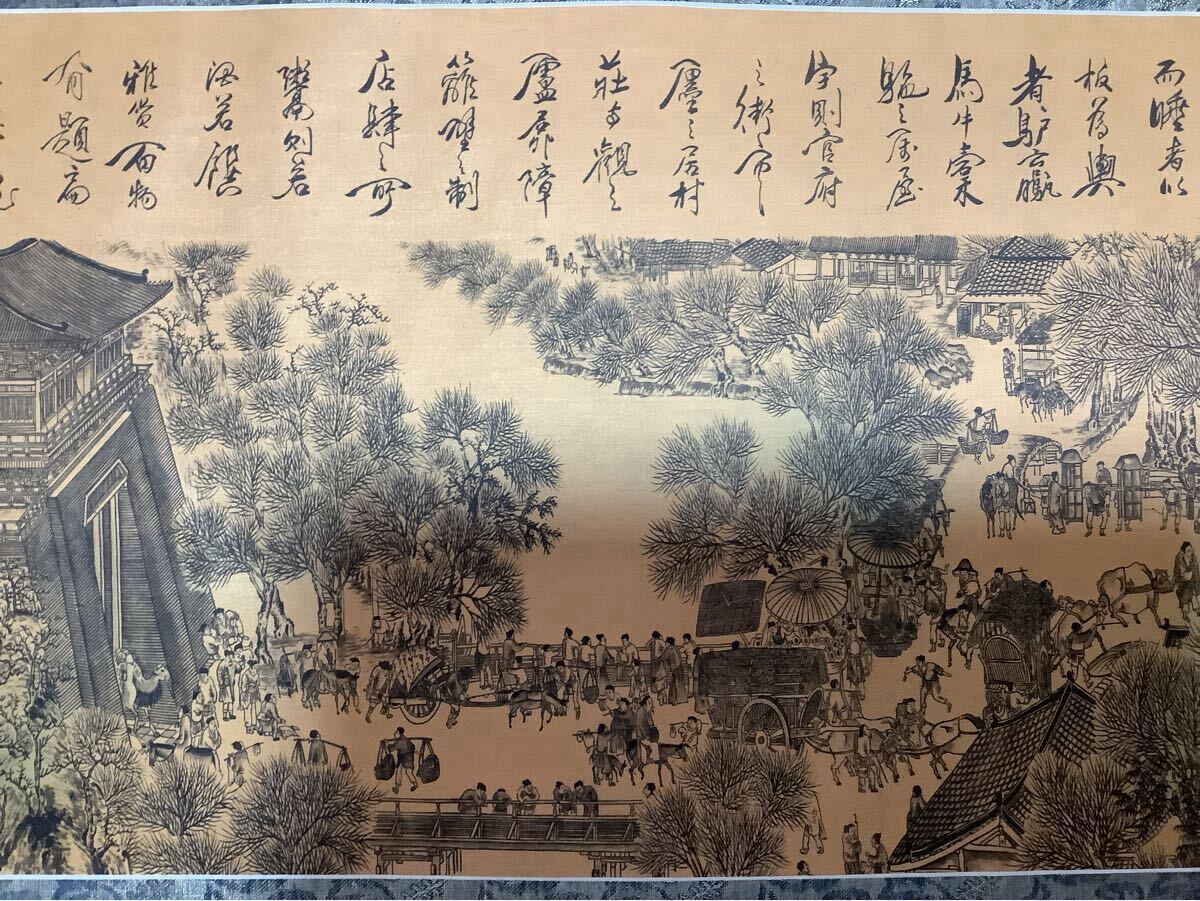 而睡者以
板為輿
者驢騾
馬牛橐
駝之屬屋
宇則官府
之衙市之
廛之居村
莊寺觀之
廬屏障
籬壁之制
店肆之所
鬻則若
酒若饌
雜貨百物
有題扁